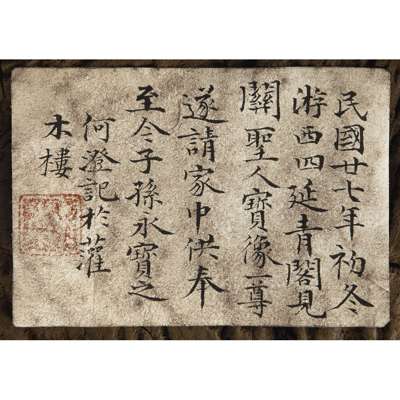 民國廿七年初冬
游西四延青閣見
關聖人寶像一尊
遂請家中供奉
至今子孫永寶之
何澄記於灌
木樓